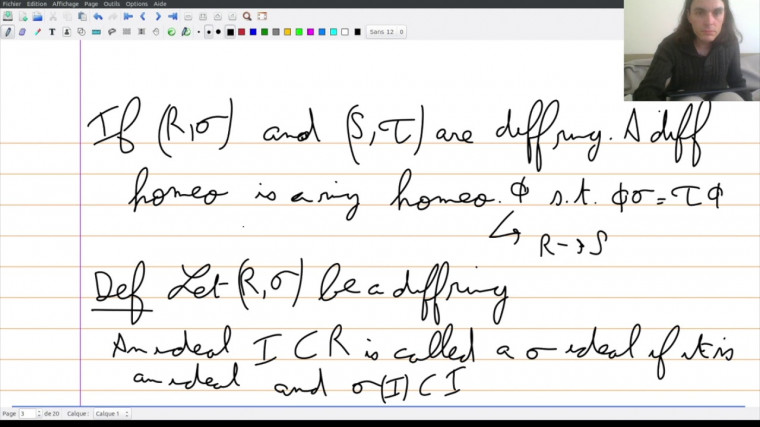 Fichier Edition Affichage Page Outils Options Aide
Sans 12
If (R,σ) and (S,τ) are diffring. A diff
homeo is a ring homeo. ϕ s.t. ϕσ=τϕ
R→S
Def Let (R,σ) be a diffring
An ideal I ⊂ R is called a σ ideal if it is
an ideal and σ(I) ⊂ I
Page 3 de 20 Calque : Calque 1